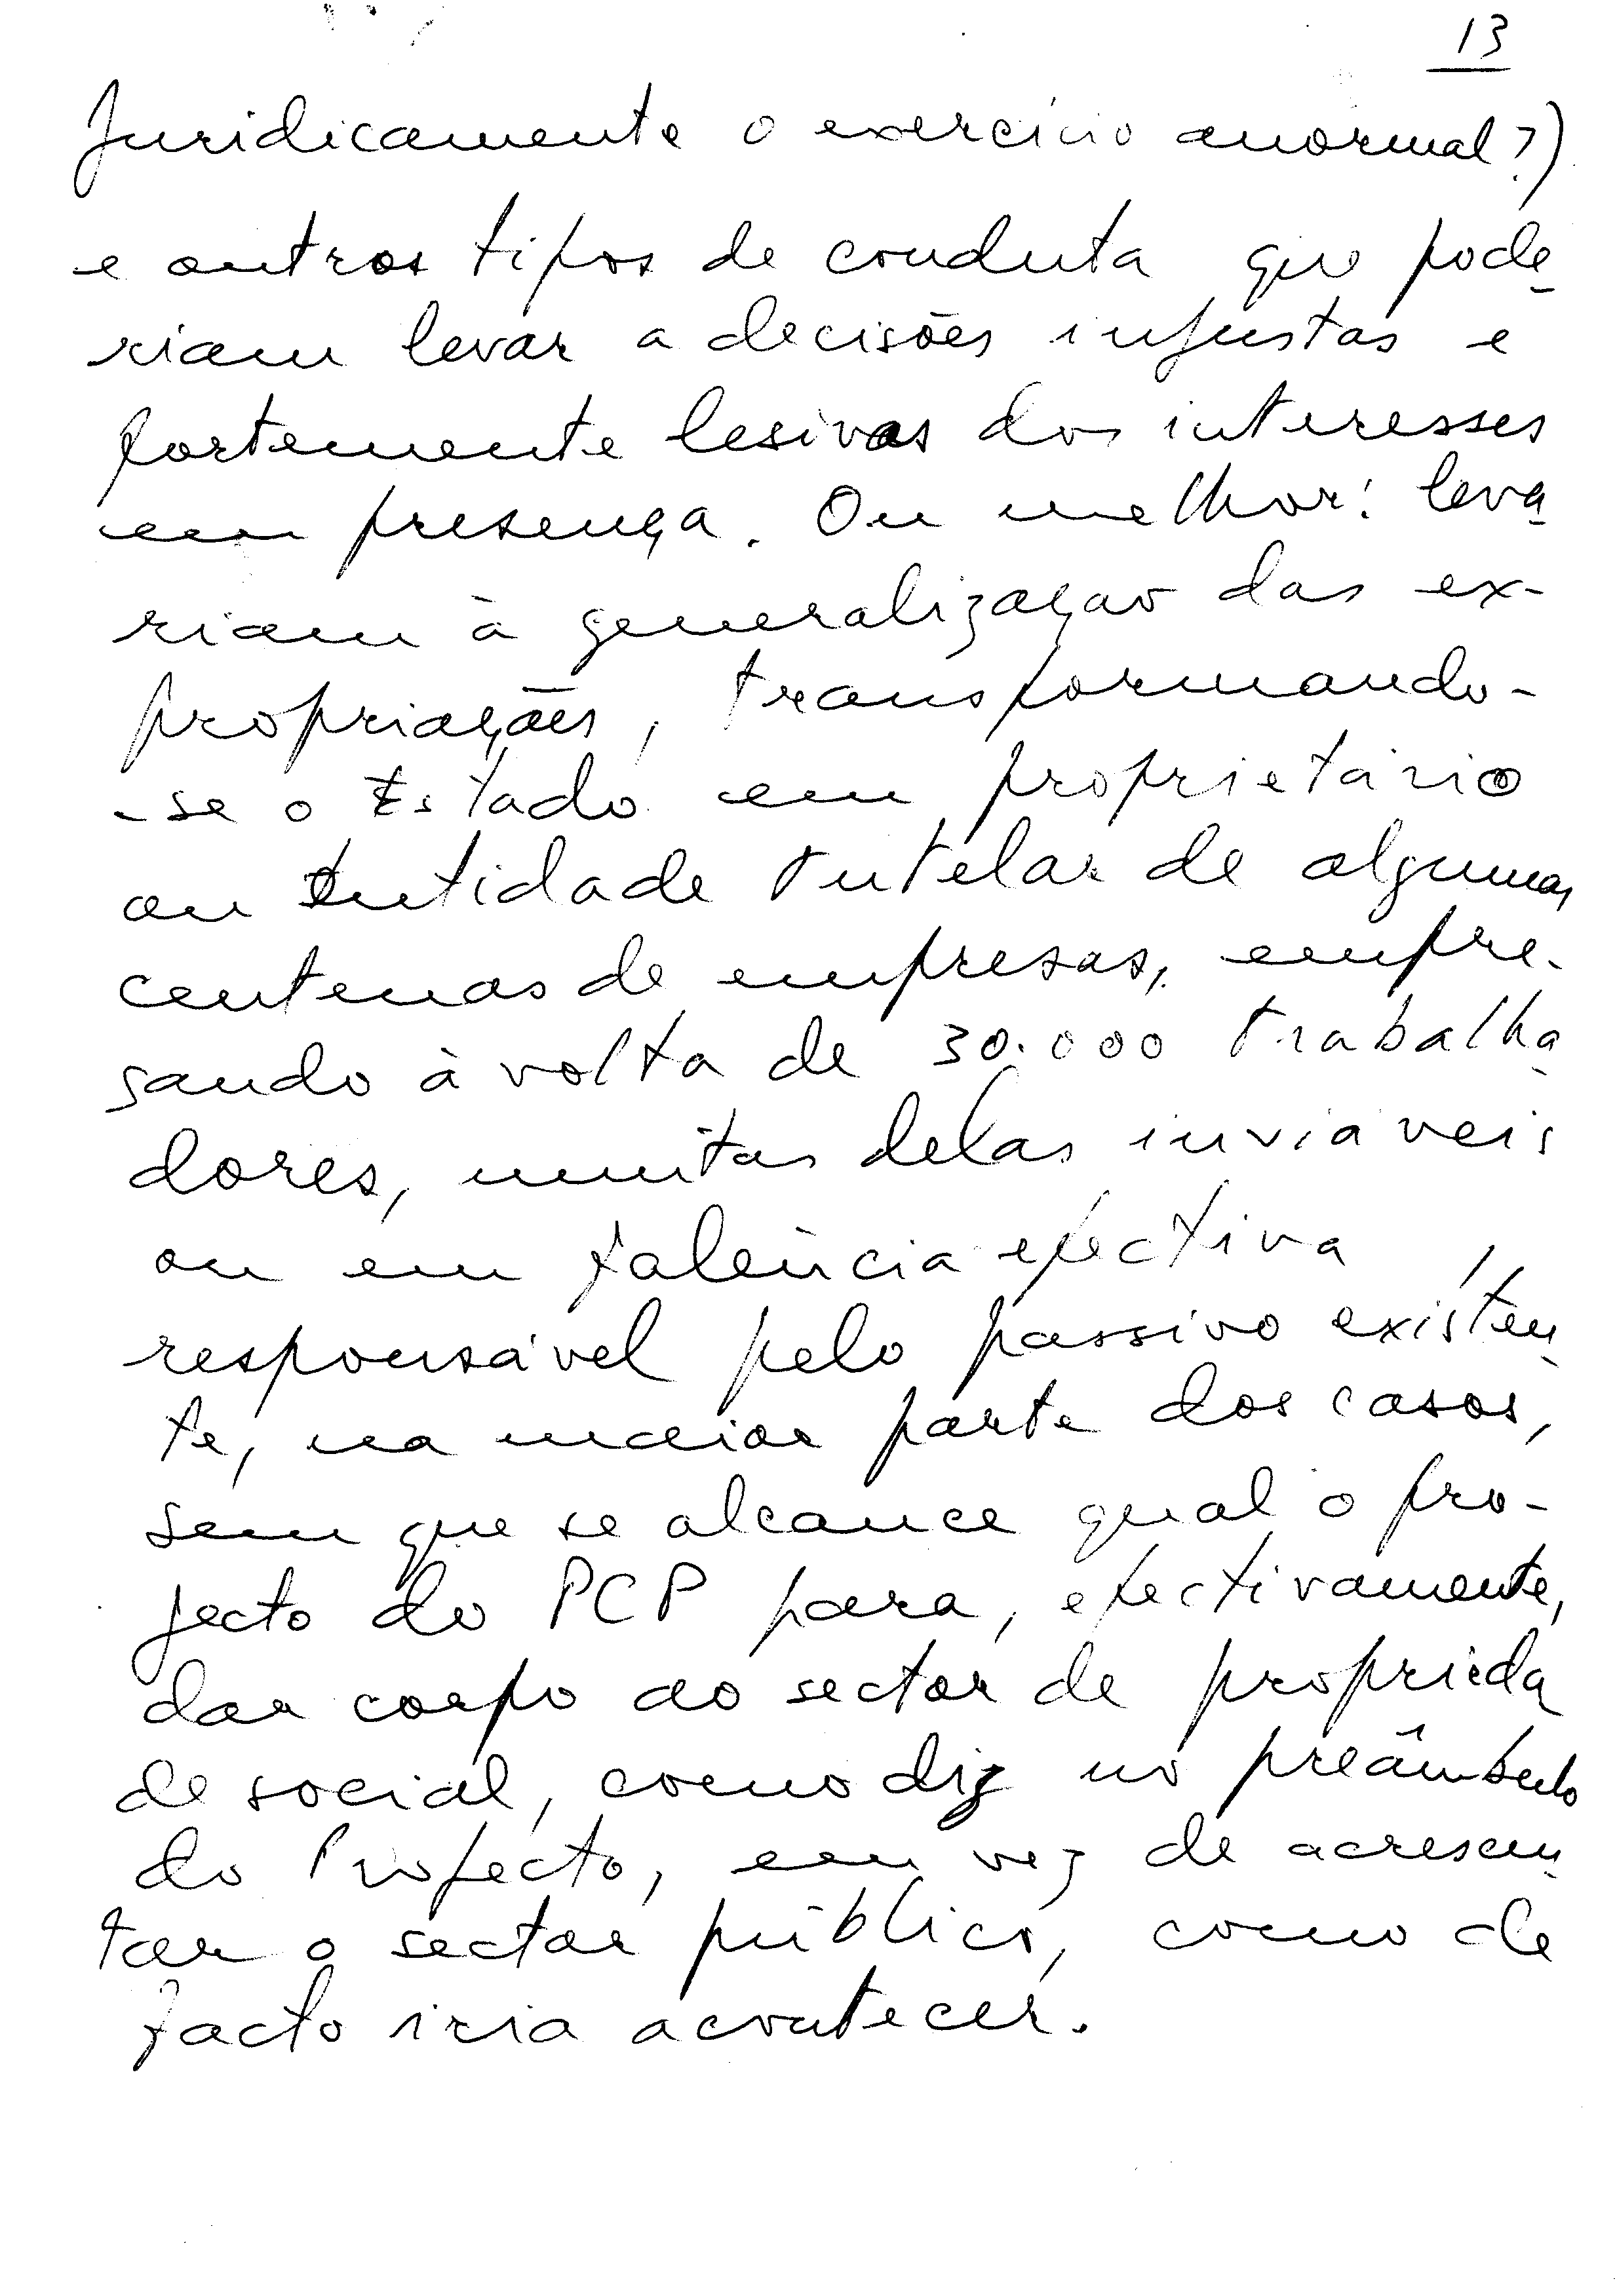 13
Juridicamente o exercício anormal?)
e outros tipos de conduta que pode-
riam levar a decisões injustas e
fortemente lesivas dos interesses
em presença. Ou melhor: leva-
riam à generalização das ex-
propriações, transformando-
-se o Estado em proprietário
ou Entidade tutelar de algumas
centenas de empresas, empre-
gando à volta de 30.000 trabalha-
dores, muitas delas inviáveis
ou em falência efectiva,
responsável pelo passivo existen-
te, na maior parte dos casos,
sem que se alcance qual o pro-
jecto do PCP para, efectivamente,
dar corpo ao sector de proprieda
de social, como diz no preâmbulo
do Projecto, em vez de acrescen-
tar o sector público, como de
facto iria acontecer.